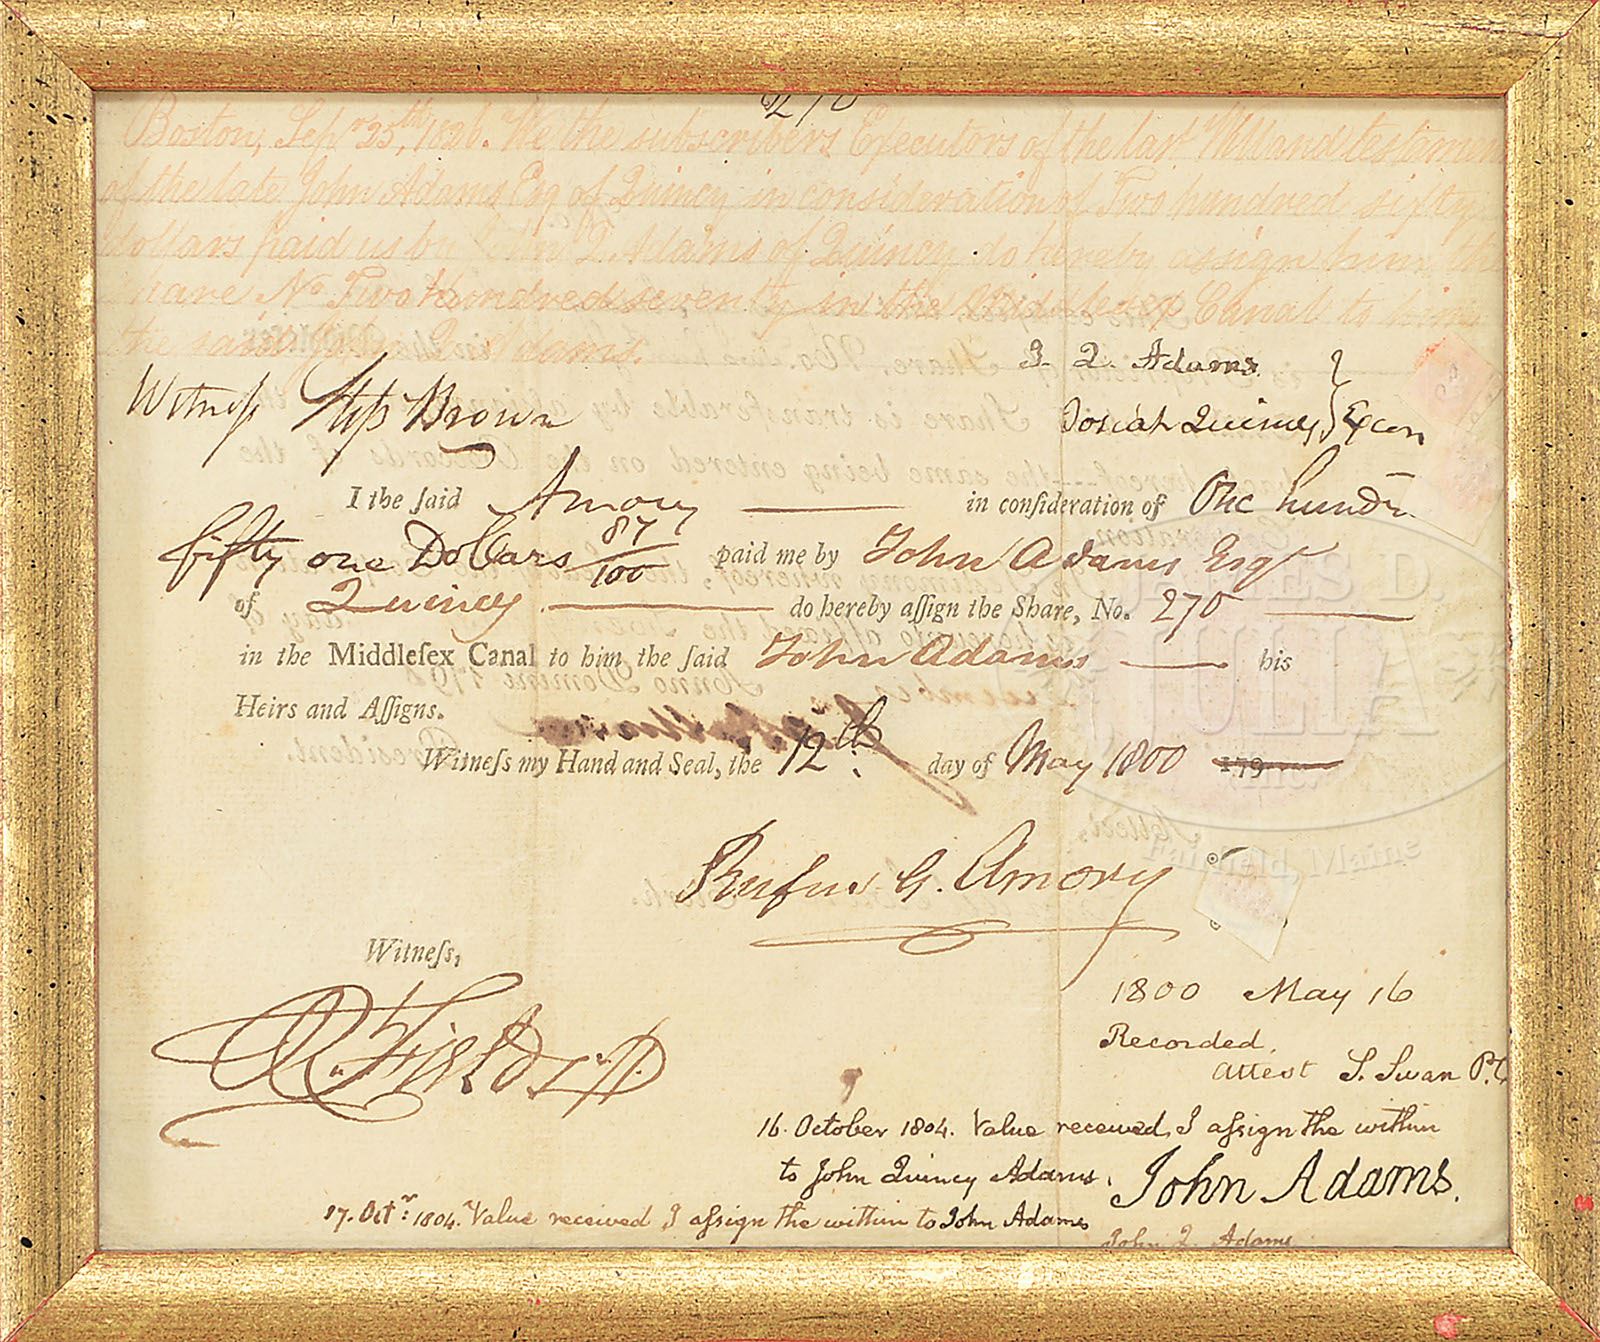 270
Boston, Sepr 25th, 1826. We the subscribers Executors of the last Will and testament
of the late John Adams Esq of Quincy in consideration of Two hundred fifty
dollars paid us by John Q. Adams of Quincy do hereby assign him the
share No Two hundred seventy in the Middlesex Canal to him
the said John Q. Adams.
J. Q. Adams }
Witneſs Brown
Josiah Quincy } Execon
I the ſaid Amory in conſideration of One hundr
fifty one Dollars 87/100 paid me by John Adams Esqr
of Quincy do hereby aſſign the Share, No. 270
in the Middleſex Canal to him the ſaid John Adams his
Heirs and Aſſigns.
Witneſs my Hand and Seal, the 12th day of May 1800 179
Rufus G. Amory
Witneſs,
1800 May 16
Recorded,
attest S. Swan P.C
16. October 1804. Value received, I aſsign the within
to John Quincy Adams. John Adams.
17. Octr: 1804. Value received I aſsign the within to John Adams
John Q. Adams
JAMES D.
JULIA
INC.
Fairfield, Maine